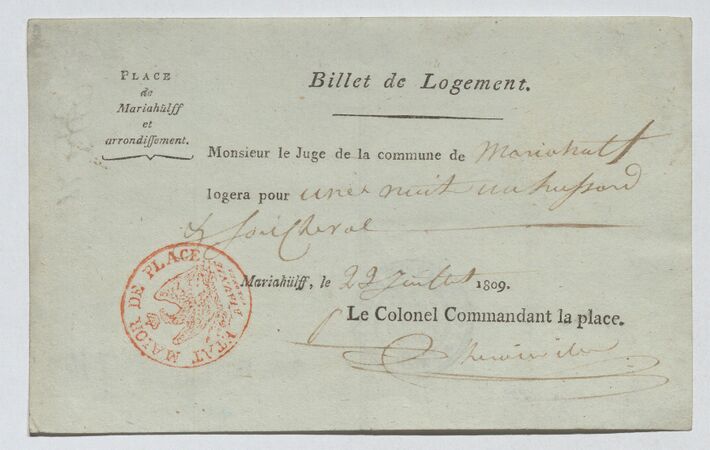 PLACE
de
Mariahülff
et
arrondissement.
Billet de Logement.
Monsieur le Juge de la commune de Mariahulf
logera pour une nuit un hussard
& son Cheval
Mariahülff, le 22 Juillet 1809.
Le Colonel Commandant la place.
ETAT MAJOR DE PLACE